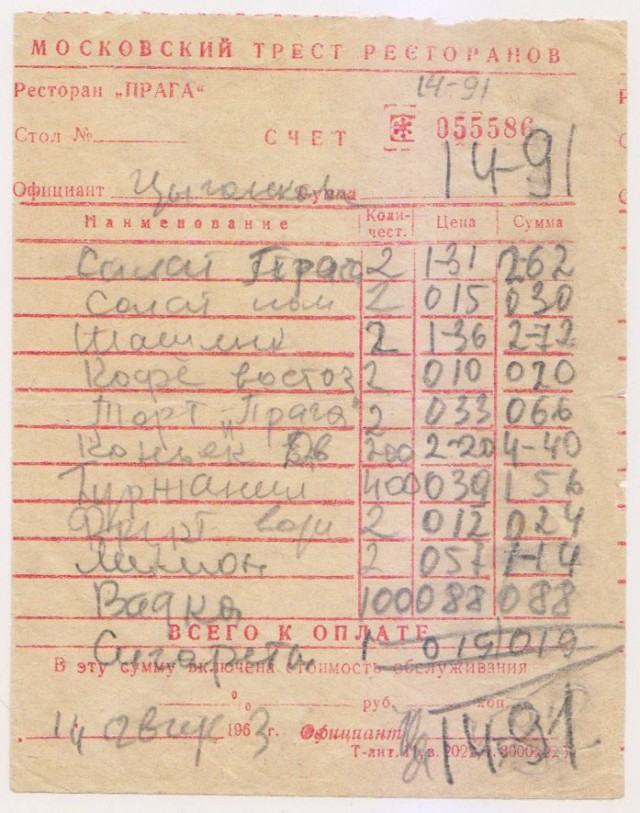 МОСКОВСКИЙ ТРЕСТ РЕСТОРАНОВ
Ресторан „ПРАГА“ 14-91
Стол № СЧЕТ 055586
Официант Сумма 14-91
Наименование Коли-чест. Цена Сумма
Салат Праг 2 1-31 2-62
Салат пом 2 015 030
Шашлык 2 1-36 2-72
Кофе восточ 2 010 020
Торт „Прага“ 2 033 066
Коньяк 200 2-20 4-40
Гуржаани 400 039 156
Фрукт воды 2 012 024
Лимон 2 057 1-14
Водка 100 088 088
ВСЕГО К ОПЛАТЕ
Сигареты 1 019 019
В эту сумму включена стоимость обслуживания
% руб. коп.
14 август 1963 г. Официант 14-91